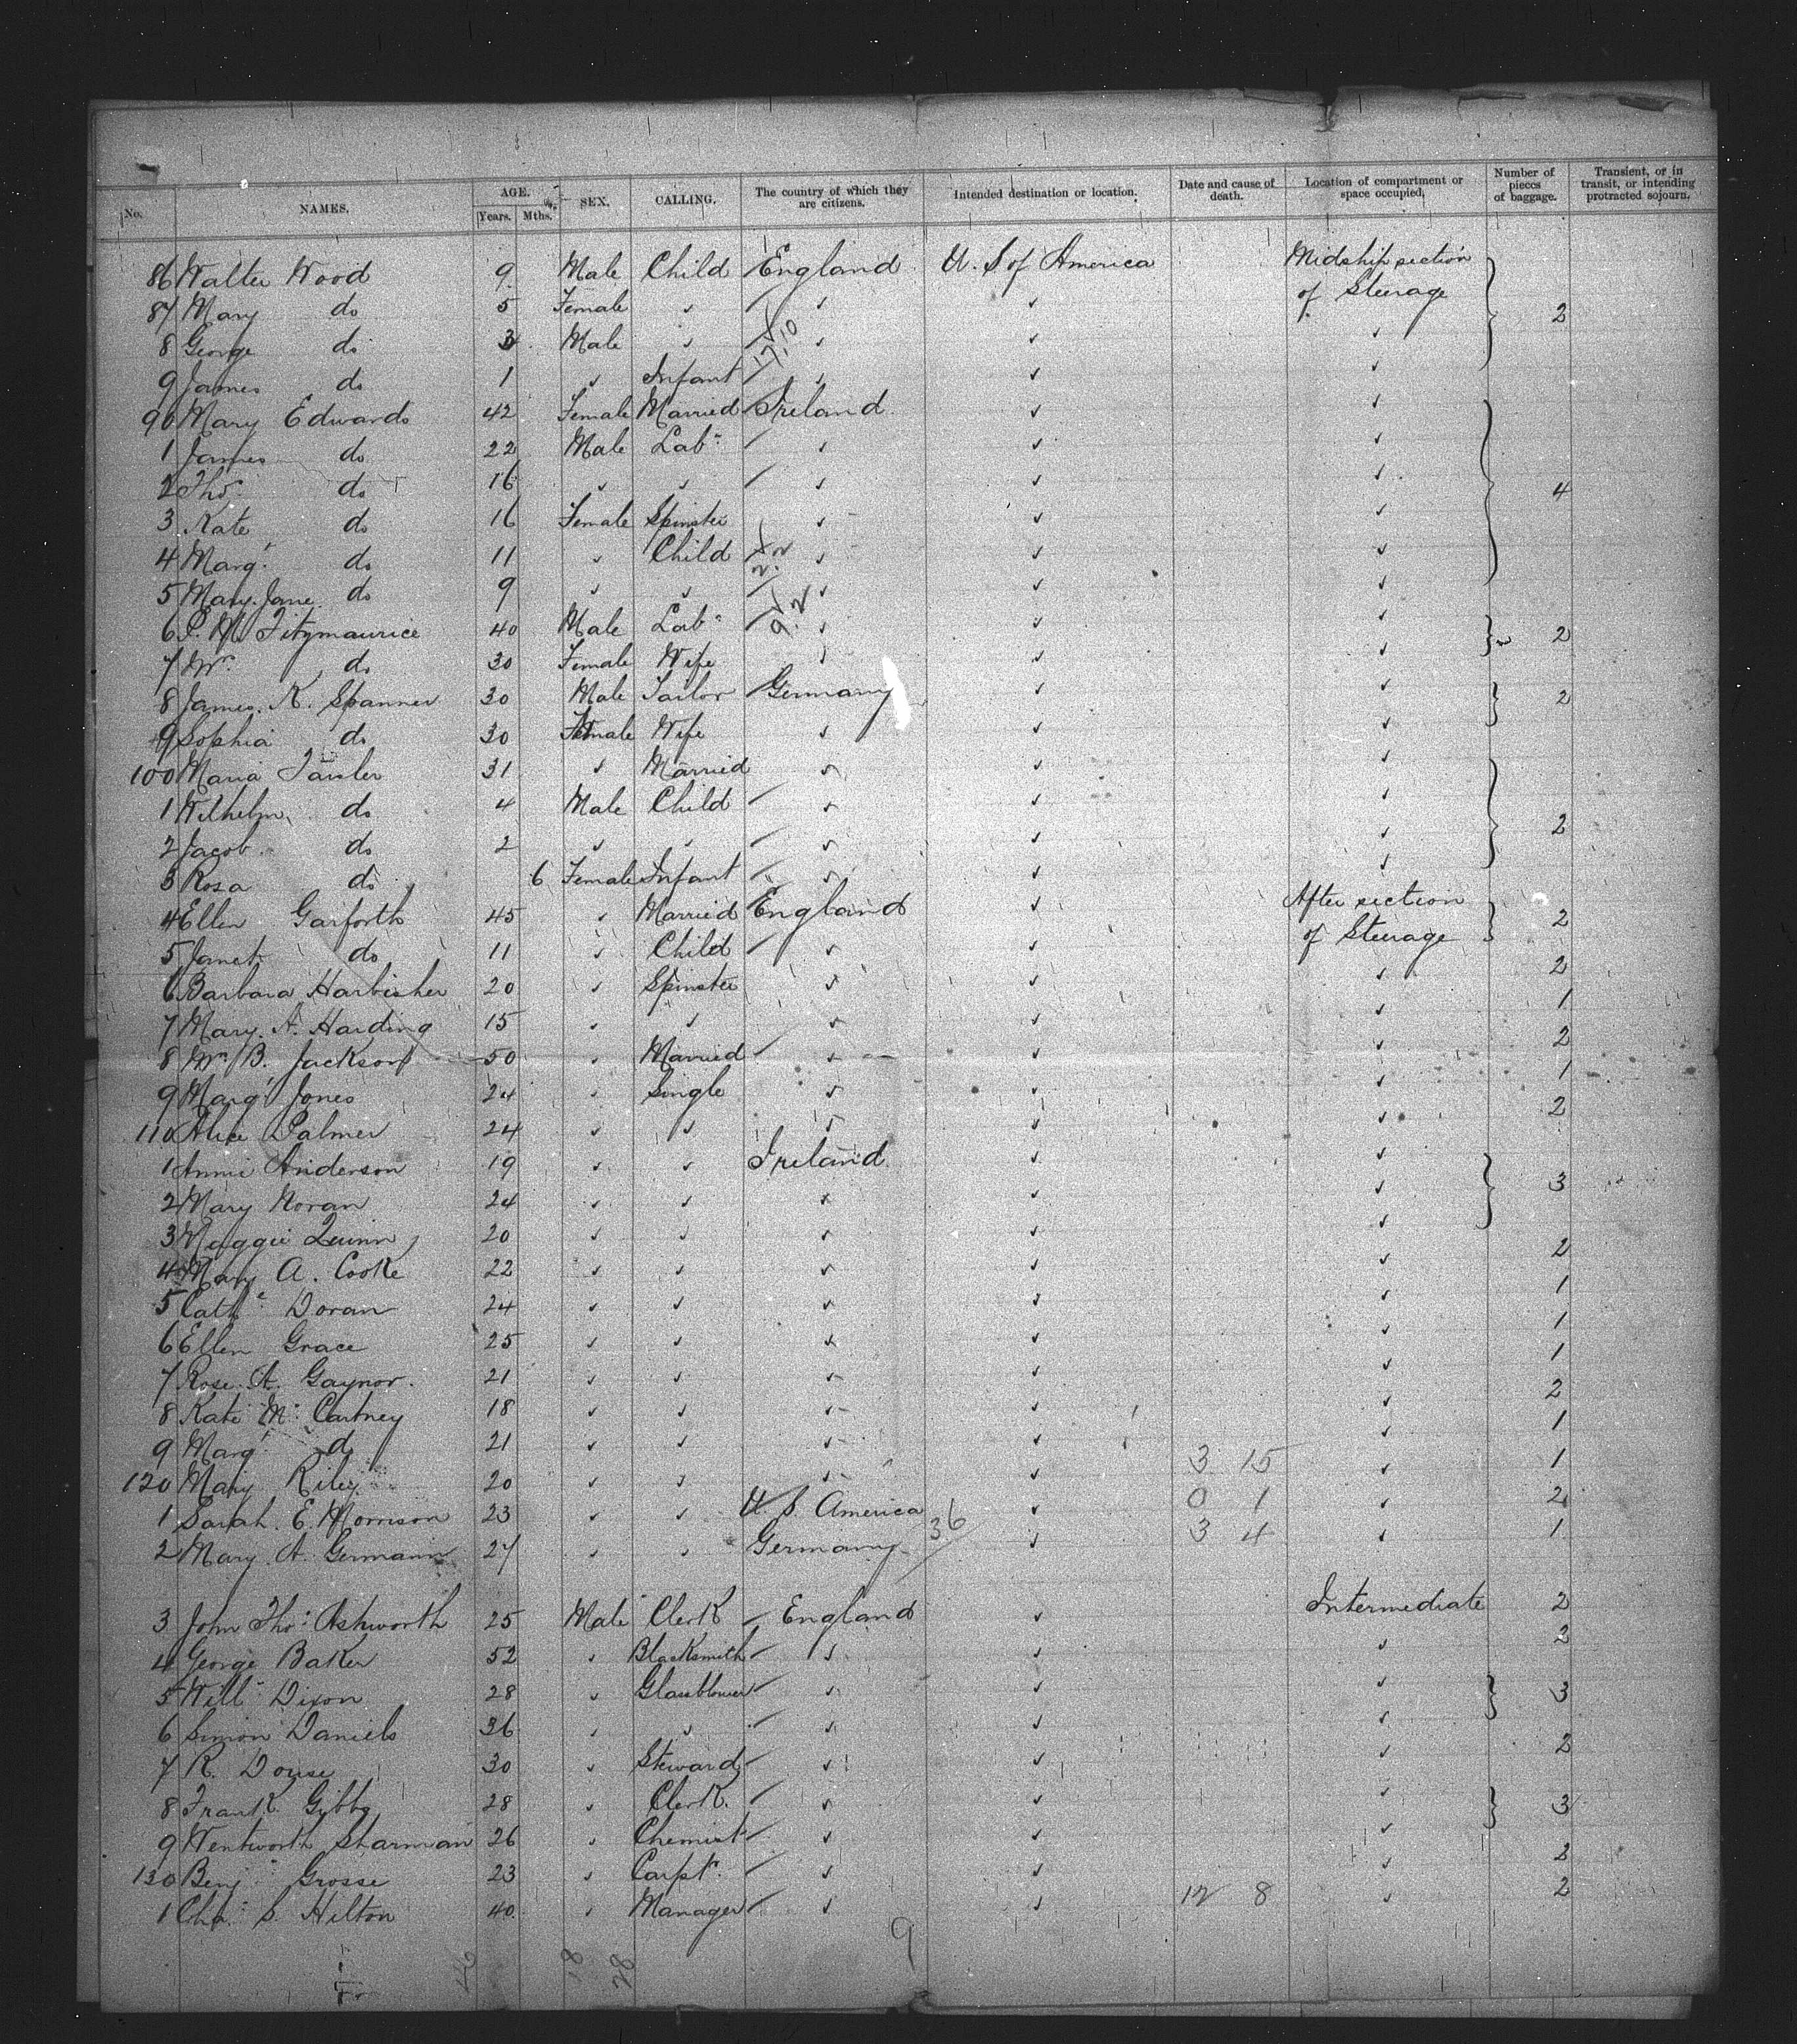 No. NAMES. AGE. Years. Mths. SEX. CALLING. The country of which they are citizens. Intended destination or location. Date and cause of death. Location of compartment or space occupied. Number of pieces of baggage. Transient, or in transit, or intending protracted sojourn.
86 Walter Wood 9 Male Child England U. S of America Midship section of Steerage
87 Mary do 5 Female ✓ ✓ ✓ 2
8 George do 3 Male ✓ ✓ ✓ ✓
9 James do 1 ✓ Infant ✓ ✓ ✓
90 Mary Edwards 42 Female Married Ireland ✓ ✓
1 James do 22 Male Labr ✓ ✓ ✓
2 Thos do 16 ✓ ✓ ✓ ✓ ✓ 4
3 Kate do 16 Female Spinster ✓ ✓ ✓
4 Margt do 11 ✓ Child ✓ ✓ ✓
5 Mary Jane do 9 ✓ ✓ ✓ ✓ ✓
6 Fitzmaurice 40 Male Labr ✓ ✓ ✓ 2
7 Mrs do 30 Female Wife ✓ ✓ ✓
8 James K. Spanner 30 Male Tailor Germany ✓ ✓ 2
9 Sophia do 30 Female Wife ✓ ✓ ✓
100 Maria 31 ✓ Married ✓ ✓ ✓
1 Wilhelm do 4 Male Child ✓ ✓ ✓
2 Jacob do 2 ✓ ✓ ✓ ✓ ✓ 2
3 Rosa do 6 Female Infant ✓ ✓ ✓
4 Ellen Garforth 45 ✓ Married England ✓ After section of Steerage 2
5 Janet do 11 ✓ Child ✓ ✓
6 Barbara Harbisher 20 ✓ Spinster ✓ ✓ ✓ 2
7 Mary A. Harding 15 ✓ ✓ ✓ ✓ ✓ 1
8 Mrs B. Jackson 50 ✓ Married ✓ ✓ ✓ 2
9 Margt Jones 24 ✓ Single ✓ ✓ ✓ 1
110 Alice Palmer 24 ✓ ✓ ✓ ✓ ✓ 2
1 Annie Anderson 19 ✓ ✓ Ireland ✓ ✓
2 Mary 24 ✓ ✓ ✓ ✓ ✓ 3
3 Maggie Quinn 20 ✓ ✓ ✓ ✓ ✓
4 Mary A. Cooke 22 ✓ ✓ ✓ ✓ ✓ 2
5 Cathe Doran 24 ✓ ✓ ✓ ✓ ✓ 1
6 Ellen Grace 25 ✓ ✓ ✓ ✓ ✓ 1
7 Rose A. Gaynor 21 ✓ ✓ ✓ ✓ ✓ 1
8 Kate Mc Cartney 18 ✓ ✓ ✓ ✓ ✓ 2
9 Margt do 21 ✓ ✓ ✓ ✓ ✓ 1
120 Mary Riley 20 ✓ ✓ ✓ ✓ 3 15 ✓ 1
1 Sarah. E. Morrison 23 ✓ ✓ U. S. America 36 ✓ 0 1 ✓ 2
2 Mary. A. Germann 27 ✓ ✓ Germany ✓ 3 4 ✓ 1
3 John Thos Ashworth 25 Male Clerk England ✓ Intermediate 2
4 George Baker 52 ✓ Blacksmith ✓ ✓ ✓ 2
5 Willm Dixon 28 ✓ Glassblower ✓ ✓ ✓ 3
6 Simon Daniels 36 ✓ ✓ ✓ ✓ ✓
7 R. Douse 30 ✓ Steward ✓ ✓ ✓ 2
8 Frank Gibbs 28 ✓ Clerk ✓ ✓ ✓ 3
9 Wentworth Sharman 26 ✓ Chemist ✓ ✓ ✓
130 Benj Grosse 23 ✓ Carptr ✓ ✓ ✓ 2
1 Chas S. Hilton 40 ✓ Manager ✓ ✓ 12 8 ✓ 2
9
46 18 28